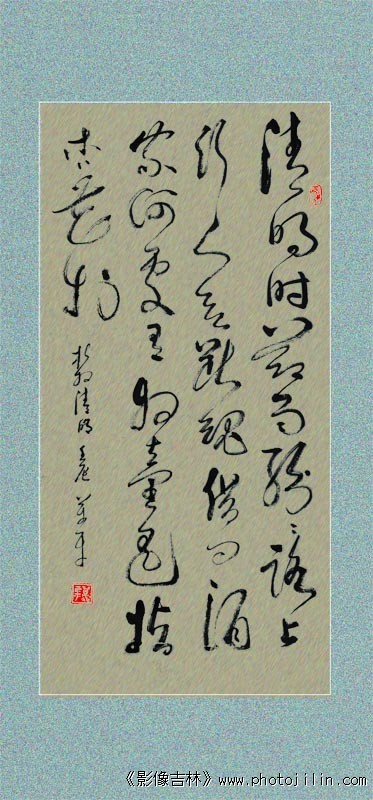 清明时节雨纷纷路上
行人欲断魂借问酒
家何处有牧童遥指
杏花村
杜牧清明
《影像吉林》www.photojilin.com